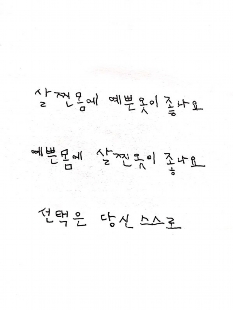 살찐몸에 예쁜옷이 좋나요
예쁜몸에 살찐옷이 좋나요
선택은 당신 스스로